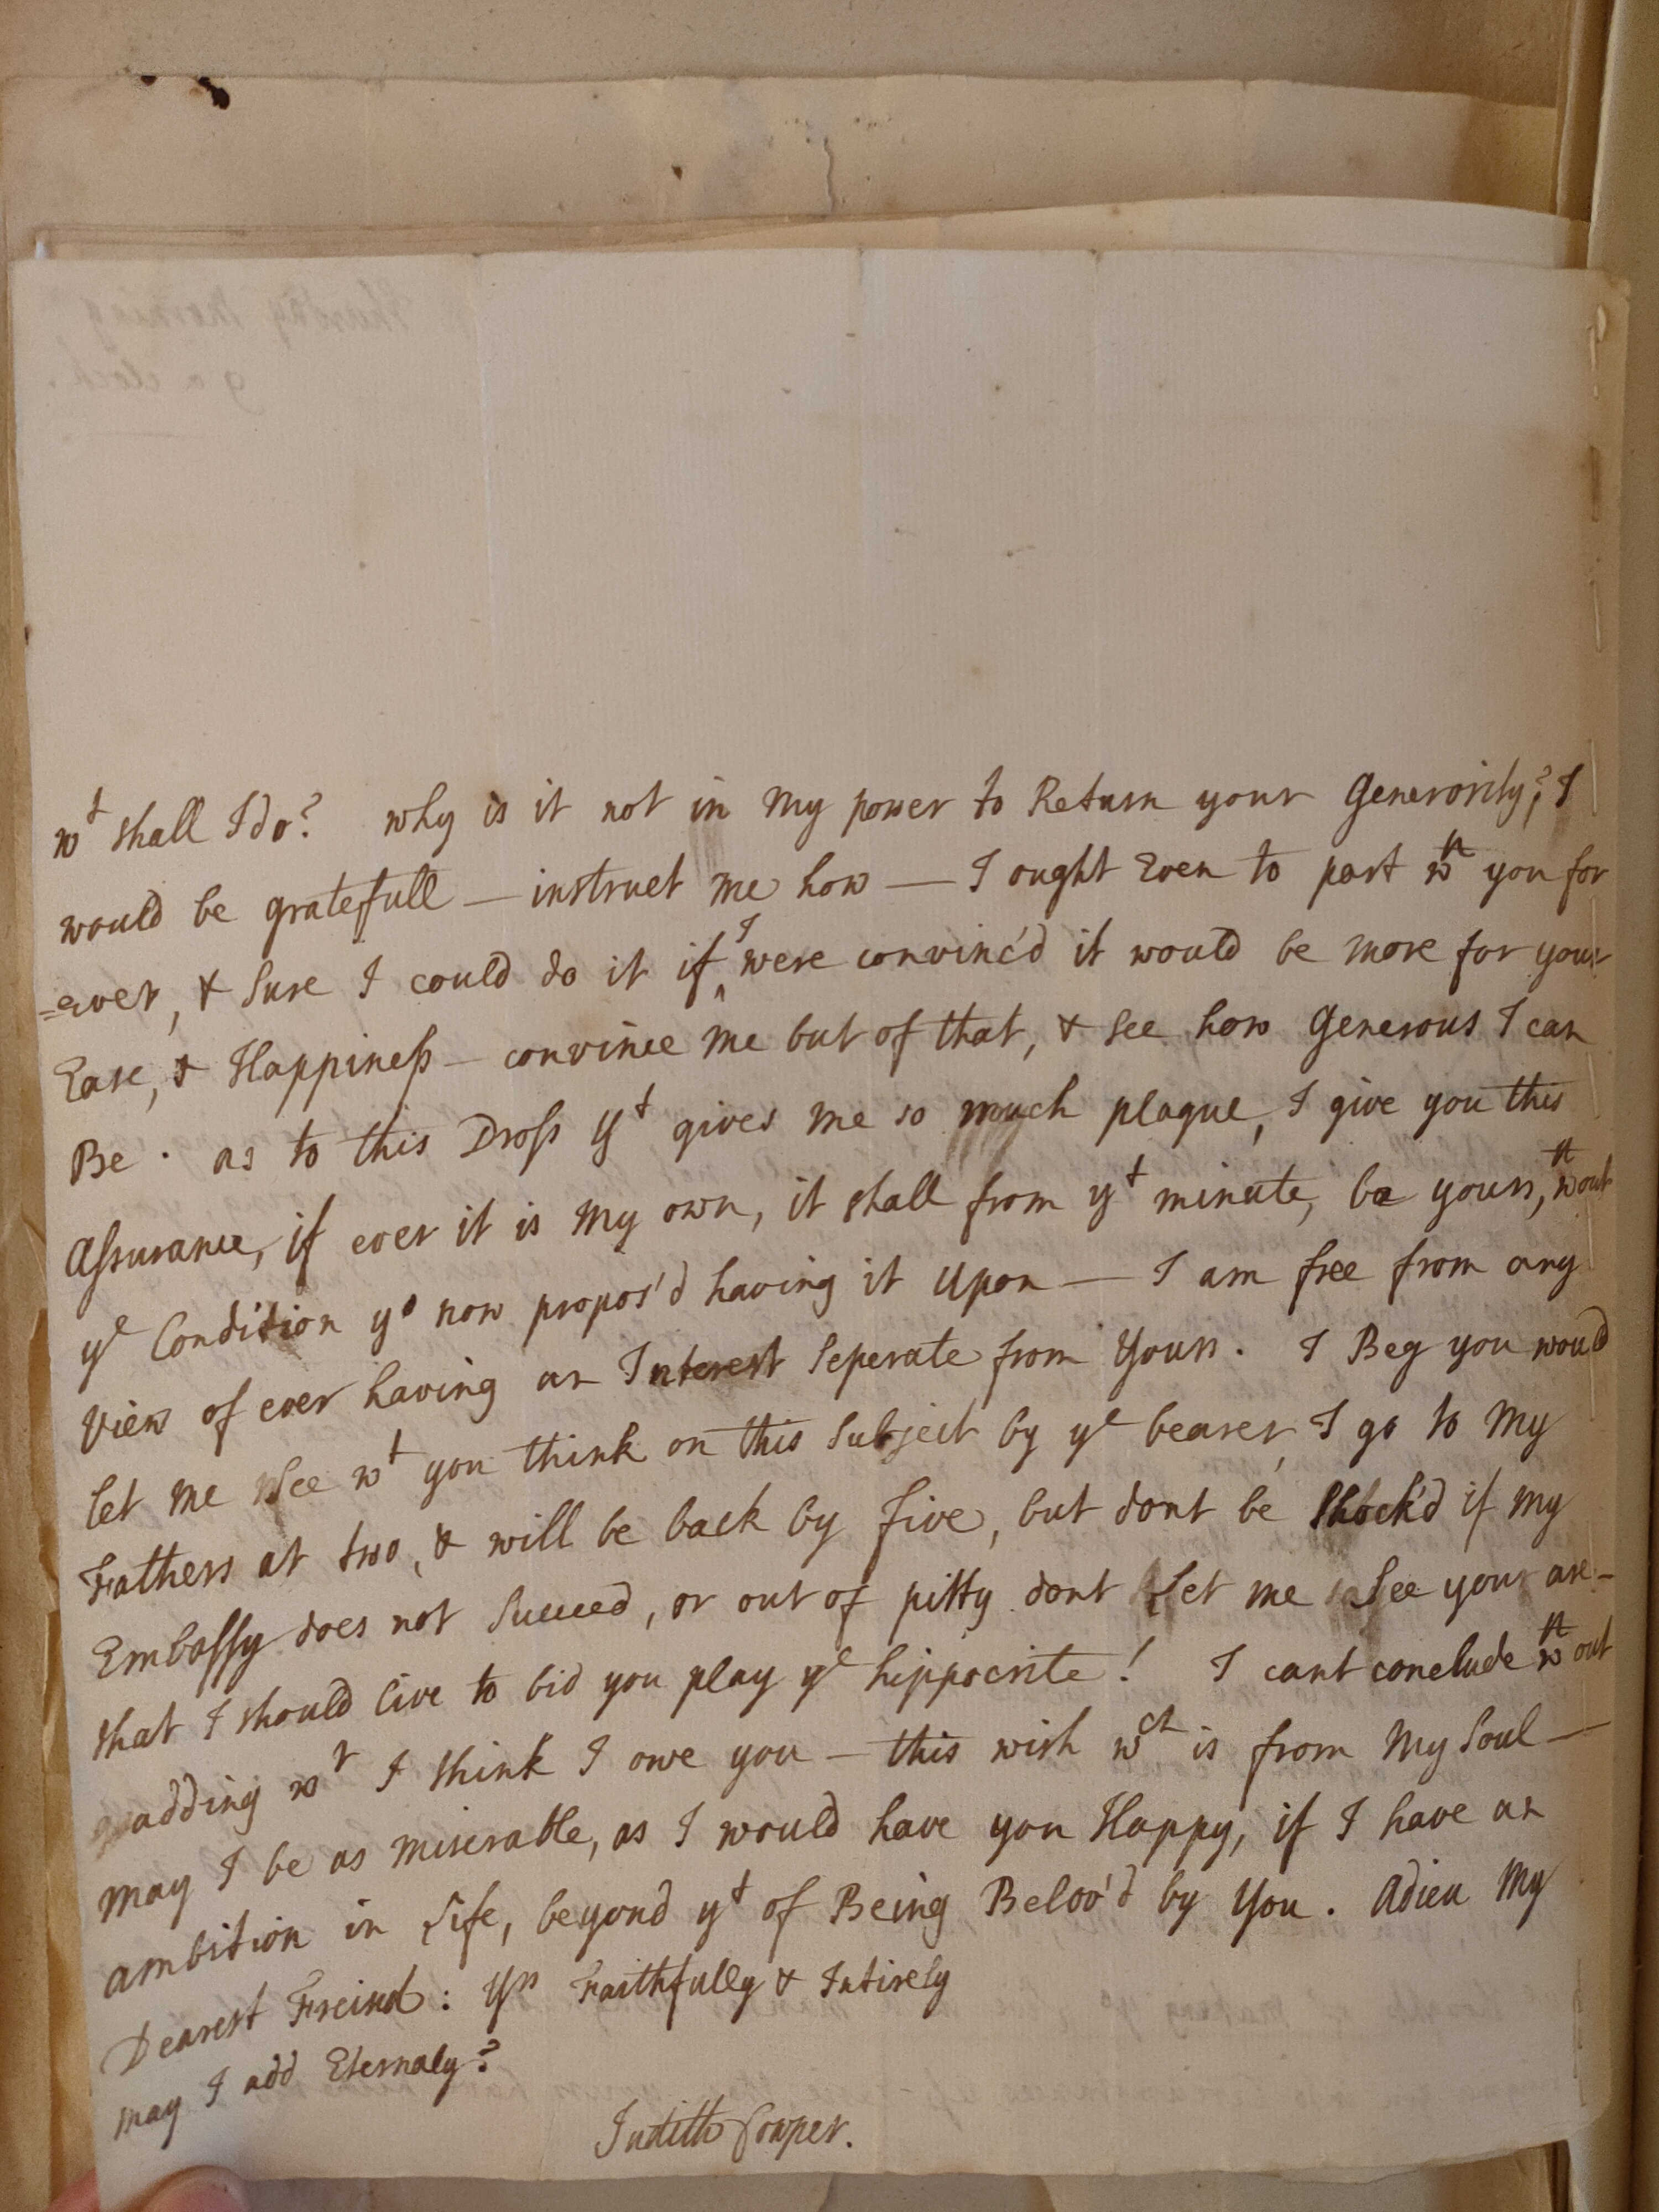 wt shall I do? why is it not in My power to Return your Generosity,? I
would be gratefull — instruct Me how — I ought Even to part wth you for
=ever, & Sure I could do it if I were convinc'd it would be More for your
Ease, & Happiness — convince Me but of that, & See how Generous I can
Be. as to this Dross yt gives Me so much plague, I give you this
Assurance, if ever it is My own, it shall from yt minute, be yours, wthout
ye Condition yo now propos'd having it Upon — I am free from any
View of ever having an Interest Seperate from Yours. I Beg you would
let Me See wt you think on this Subject by ye bearer, I go to My
Fathers at two, & will be back by five, but dont be Shock'd if My
Embassy does not Succeed, or out of pitty dont Let Me See you are —
that I should live to bid you play ye hippocrite! I cant conclude wthout
adding wt I think I owe you — this wish wch is from My Soul —
May I be as Miserable, as I would have you Happy, if I have an
ambition in Life, beyond yt of Being Belov'd by You. Adieu My
Dearest Freind: Yrs Faithfully & Intirely
May I add Eternaly?
Judith Cowper.
Thursday Morning
9 a clock.